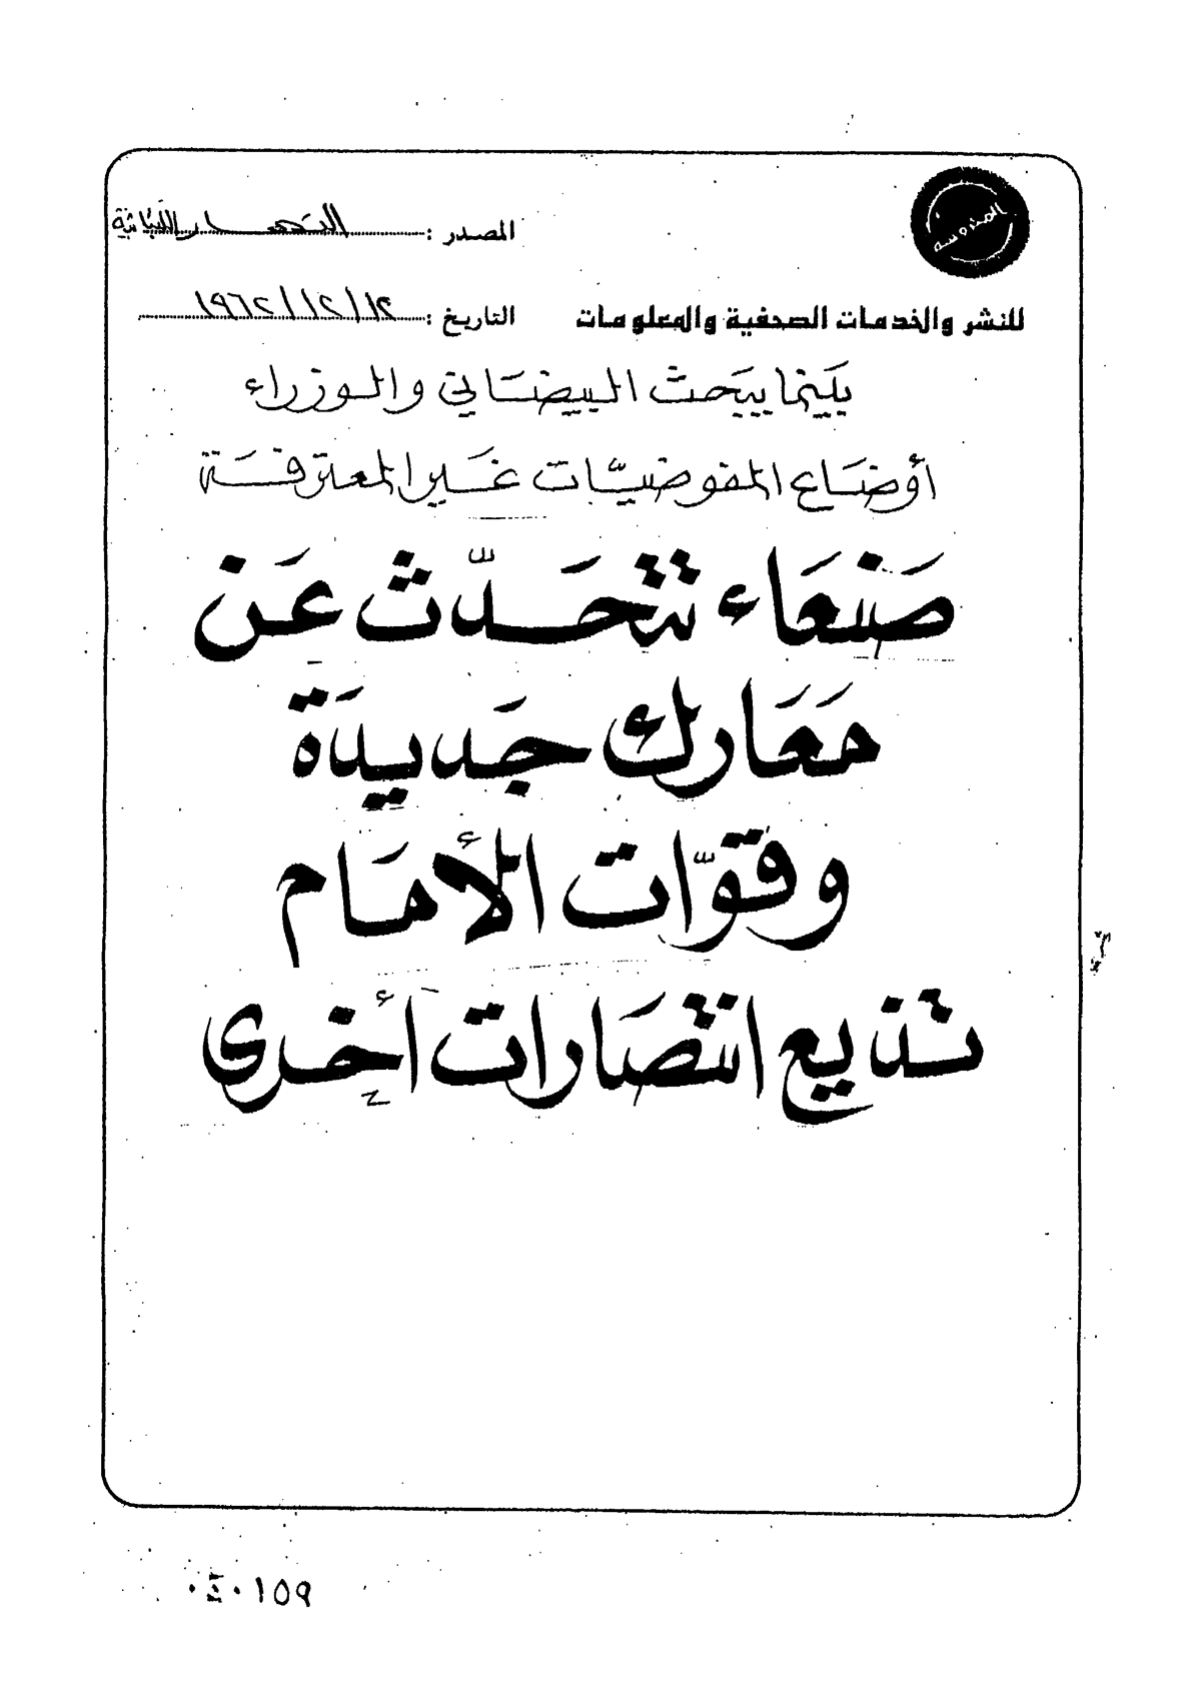 المحروسة
المصدر: النهار اللبنانية
للنشر والخدمات الصحفية والمعلومات
التاريخ: ١٢/١٢/١٩٦٢
بَينَما يبَحث البيضَاني والوزراء
أوضَاع المفوضيّات غَير المعترفَة
صَنعَاء تتحَدّث عَن
مَعَارك جَديدَة
وقوّات الأمَام
تذيع انتصَارات أخرى
٠٤٠١٥٩